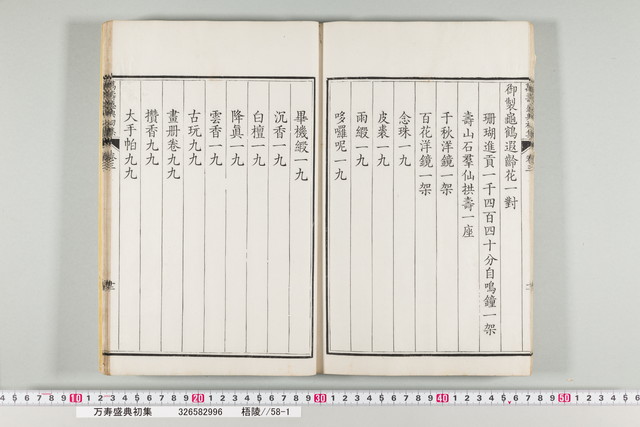 御製龜鶴遐齡花一對
珊瑚進貢一千四百四十分自鳴鐘一架
壽山石羣仙拱壽一座
千秋洋鏡一架
百花洋鏡一架
念珠一九
皮裘一九
雨緞一九
哆囉呢一九
畢機緞一九
沉香一九
白檀一九
降眞一九
雲香一九
古玩九九
畫册卷九九
攢香九九
大手帕九九
万寿盛典初集 326582996 梧陵//58-1